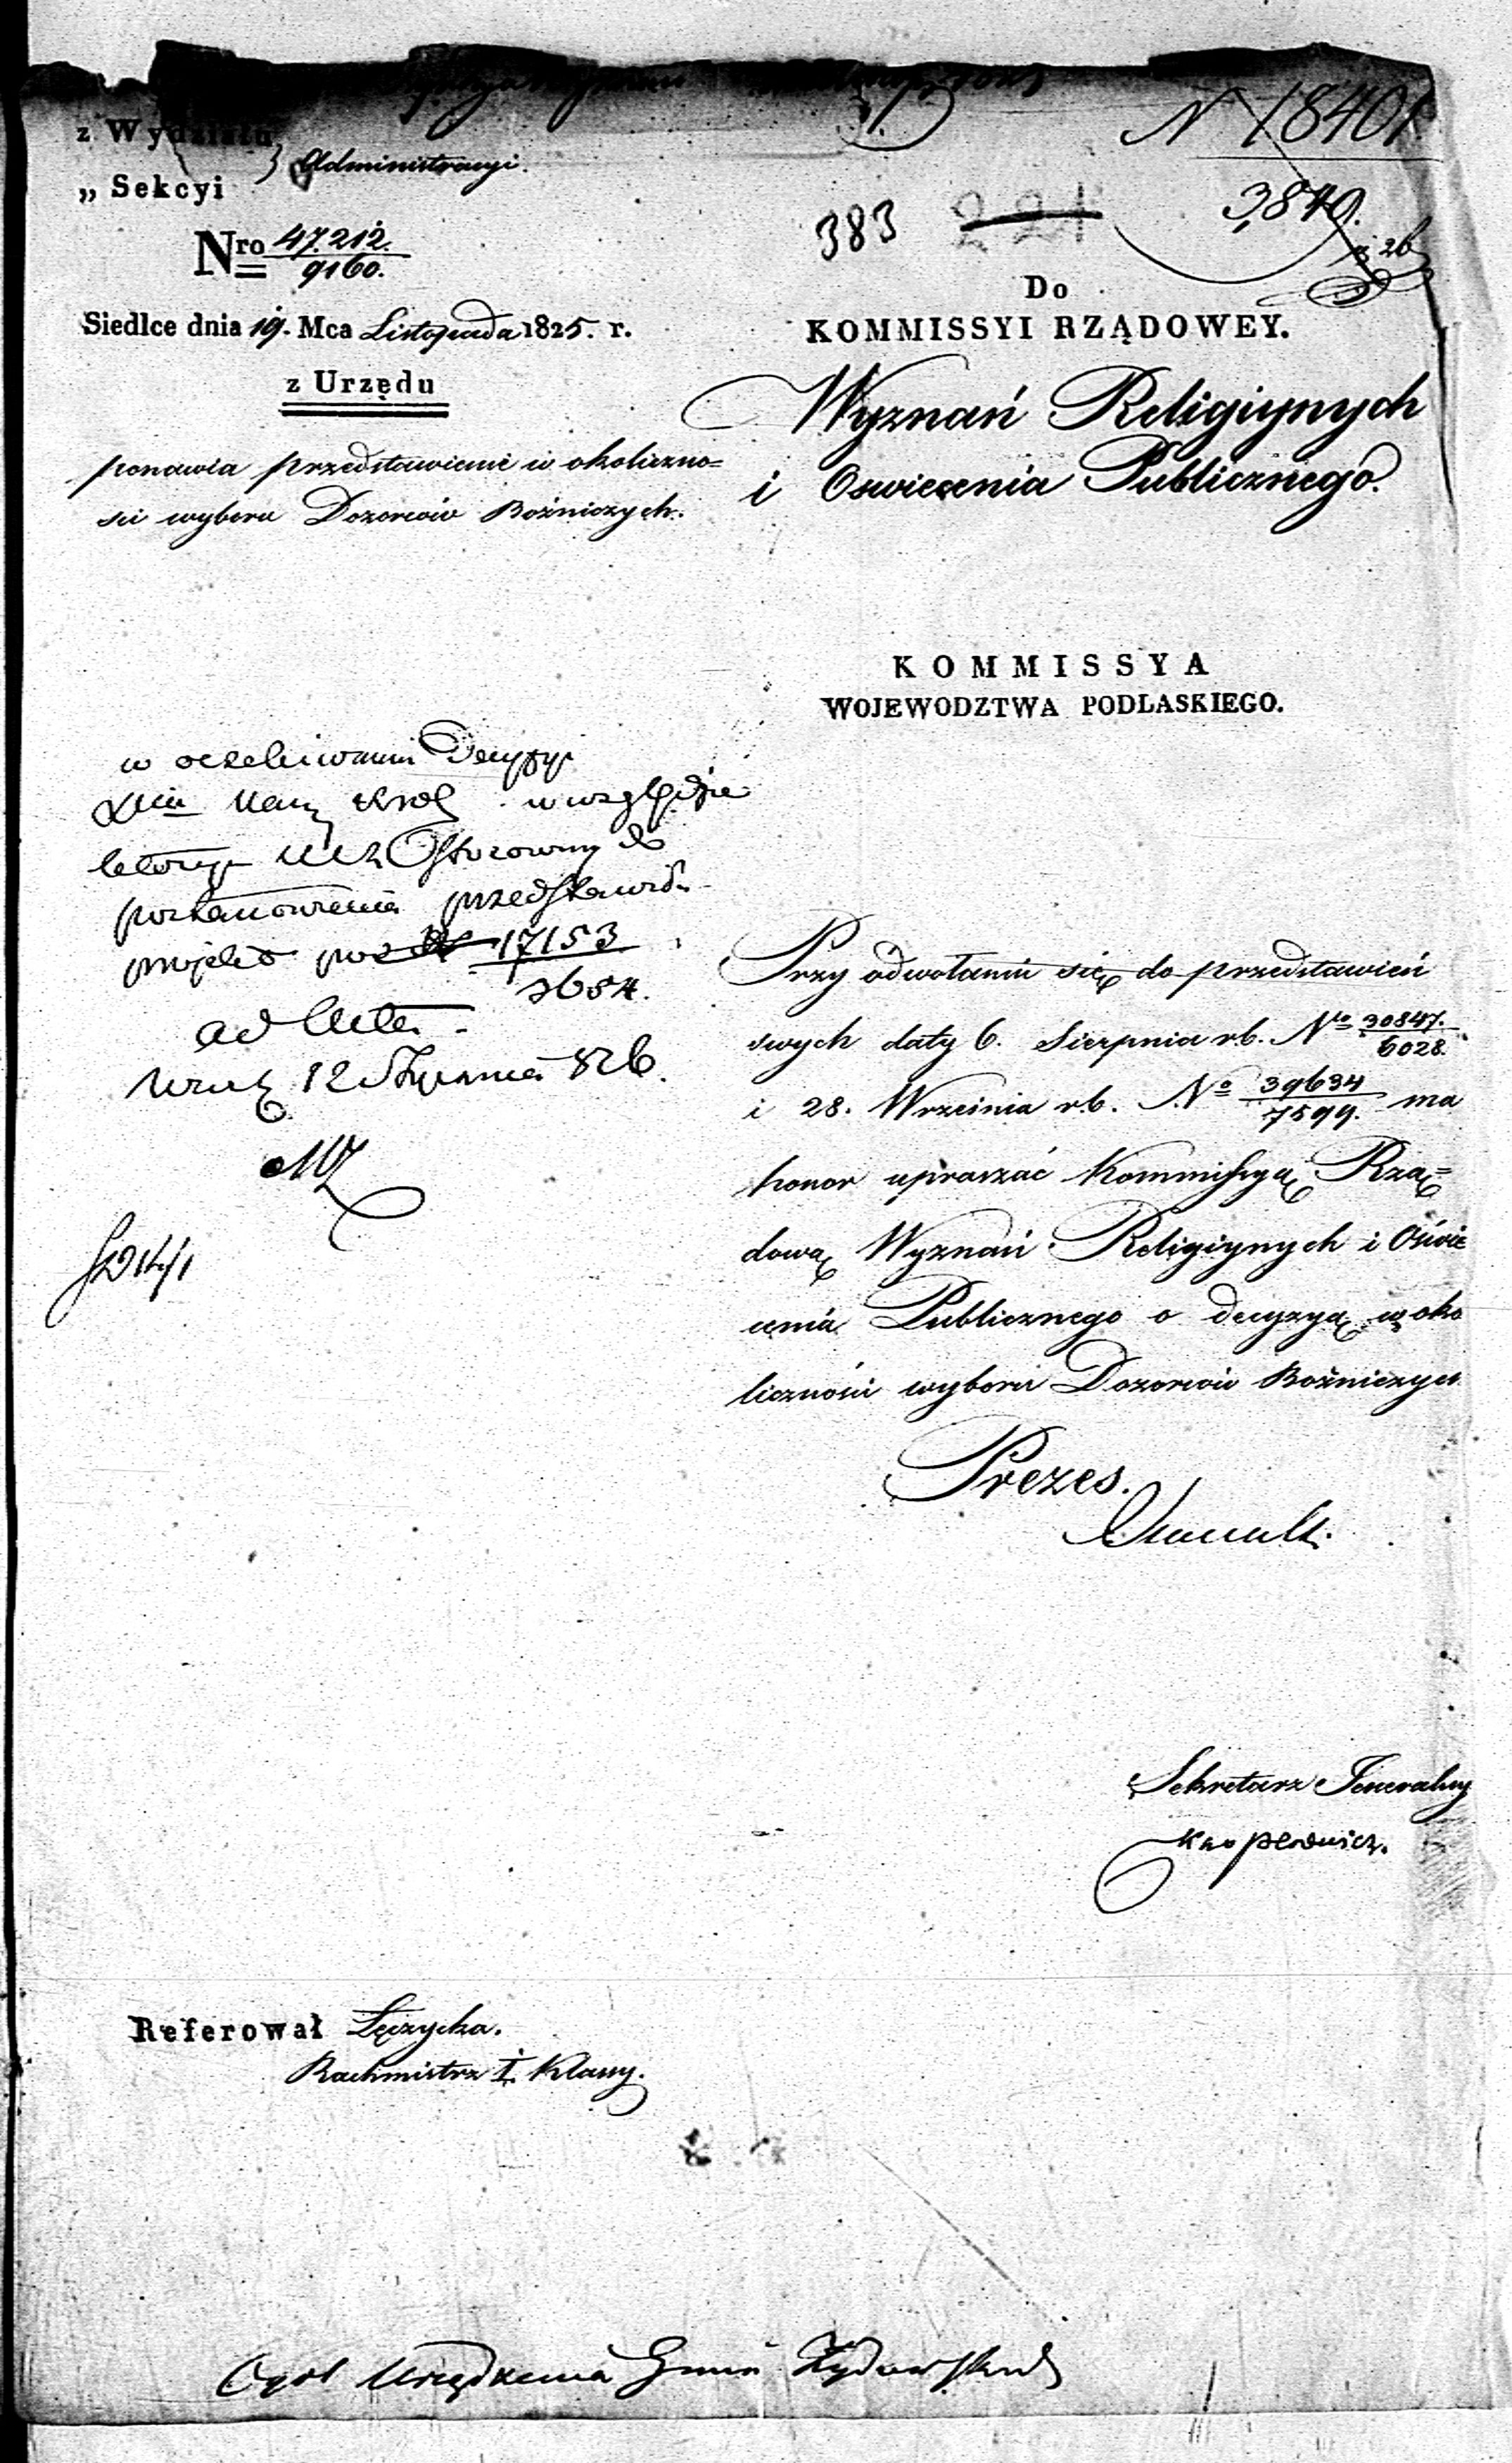 N 18401.
3,849.
383
221
z Wydziału
„ Sekcyi
Administracyi.
Nro 47.212.
9160.
Siedlce dnia 19. Mca Listopada 1825. r.
z Urzędu
ponawia przedstawienie w okoliczno=
sci wyboru Dozorców Bożniczych.
Do
KOMMISSYI RZĄDOWEY.
Wyznań Religiynych
i Oswiecenia Publicznego.
KOMMISSYA
WOJEWODZTWA PODLASKIEGO.
w oczekiwaniu Decyzyi
w względzie
do
postanowienia przedstawiono
projekt pod 17153
3654.
ad acta.
12 Stycznia 826.
Przy odwołaniu się do przedstawień
swych daty 6. Sierpnia r.b. No 30847.
6028.
i 28. Wrzesnia r.b. No 39634
7599. ma
honor upraszać Kommissyą Rzą=
dową Wyznań Religiynych i Oświe
cenia Publicznego o decyzyą w oko
liczności wyboru Dozorców Bożniczych
Prezes.
Sekretarz Jeneralny
Referował Łęczycka.
Rachmistrz I. Klassy.
Urządzenia Gmin Żydowskich